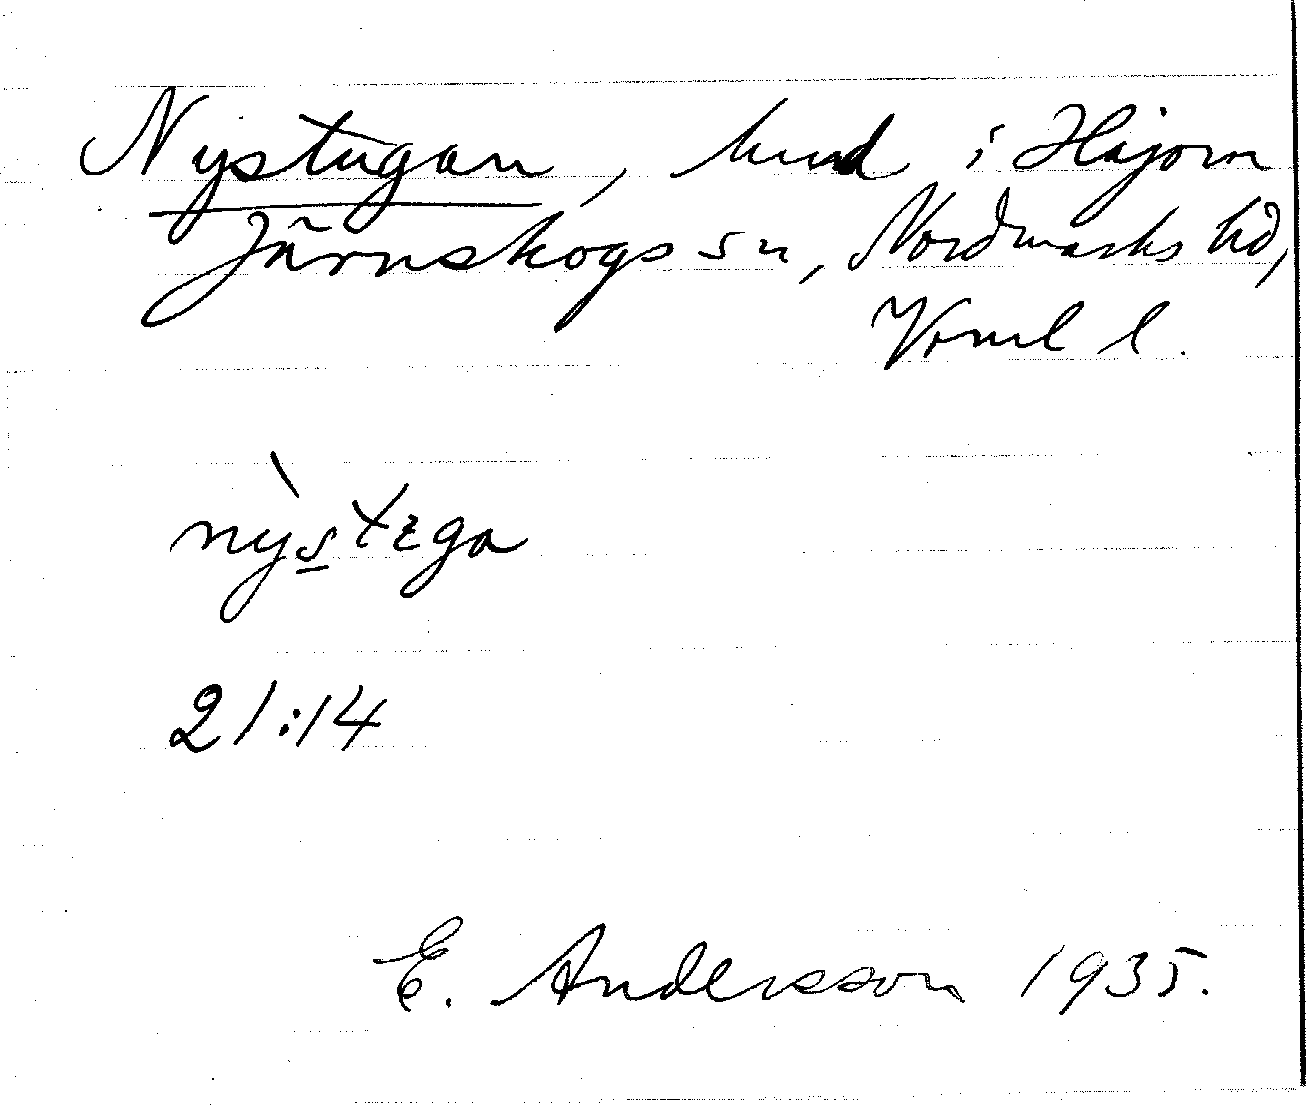 Nystugan, hmd i Håjom
Järnskogs sn, Nordmarks hd,
Vrml l.
nỳstega
21:14
E. Andersson 1935.